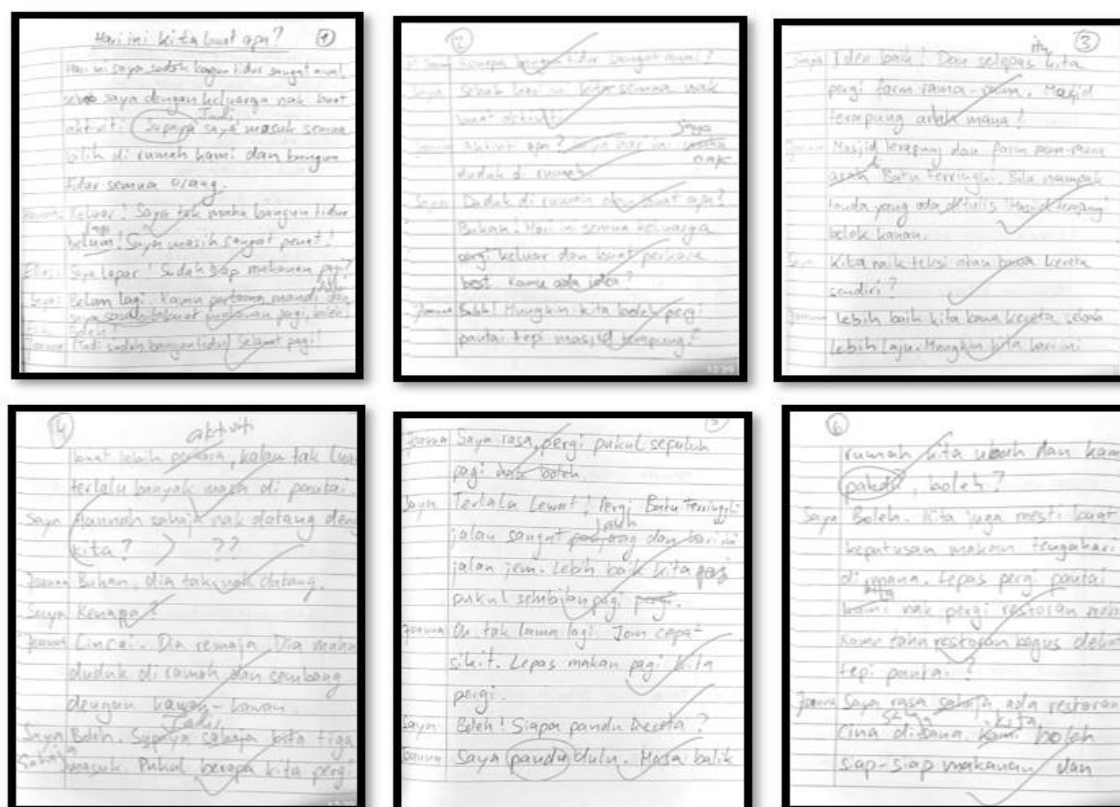 Hari ini kita buat apa? 1
Hari ini saya sudah bangun tidur sangat awal
sebab saya dengan keluarga nak buat
Jadi
aktiviti. Supaya saya masuk semua
bilik di rumah kami dan bangun
tidur semua orang.
Keluar! Saya tak mahu bangun tidur
lagi
belum! Saya masih sangat penat!
Saya lapar! Sudah siap makanan pagi?
Saya: Belum lagi. Kamu pertama mandi dan
saya makanan pagi, boleh?
Boleh!
Jadi sudah bangun tidur! Selamat pagi!
2
Kenapa bangun tidur sangat awal?
Saya Sebab hari ini kita semua nak
buat aktiviti.
Saya
Joanna Aktiviti apa? Saya hari ini
nak
duduk di rumah.
Saya Duduk di rumah buat apa?
Bukan! Hari ini semua keluarga
pergi keluar dan buat perkara
best. Kamu ada idea?
Joanna Mungkin kita boleh pergi
pantai tepi masjid terapung?
12:29
3
itu
Saya Idea baik! Dan selepas kita
pergi farm rama-rama. Masjid
terapung arah mana?
Joanna Masjid terapung dan farm rama-rama
di
arah Batu Ferringhi. Bila nampak
tanda yang ada ditulis "Masjid terapung"
belok kanan.
Saya Kita naik teksi atau bawa kereta
sendiri?
Joanna Lebih baik kita bawa kereta sebab
lebih laju. Mungkin kita hari ini
4
aktiviti
buat lebih perkara, kalau tak
terlalu banyak masa di pantai.
Saya Hannah sahaja nak datang
kita? ??
Joanna Bukan, dia tak nak datang.
Saya Kenapa?
Joanna Cincai. Dia remaja. Dia mahu
duduk di rumah dan sembang
dengan kawan-kawan.
Jadi
Saya Boleh. Supaya sahaja kita tiga
Sahaja masuk. Pukul berapa kita pergi
Joanna Saya rasa, pergi pukul sepuluh
pagi nak boleh.
Saya Terlalu lewat! Pergi Batu Ferringhi
jauh
jalan sangat panjang dan hari ini
jalan jem. Lebih baik kita pergi
pukul sembilan pagi pergi.
Joanna Oh, tak lama lagi. Jom cepat
sikit. Lepas makan pagi kita
pergi.
Saya Boleh! Siapa pandu kereta?
Joanna Saya pandu dulu. Masa balik
6
rumah kita ubah dan kamu
pandu?, boleh?
Saya Boleh. Kita juga mesti buat
keputusan makan tengahari
di mana. Lepas pergi pantai
kita
kami nak pergi restoran mana
Kamu tahu restoran bagus dekat
tepi pantai?
Joanna Saya rasa sahaja ada restoran
kita
cina di sana. Kami boleh
siap-siap makanan dan